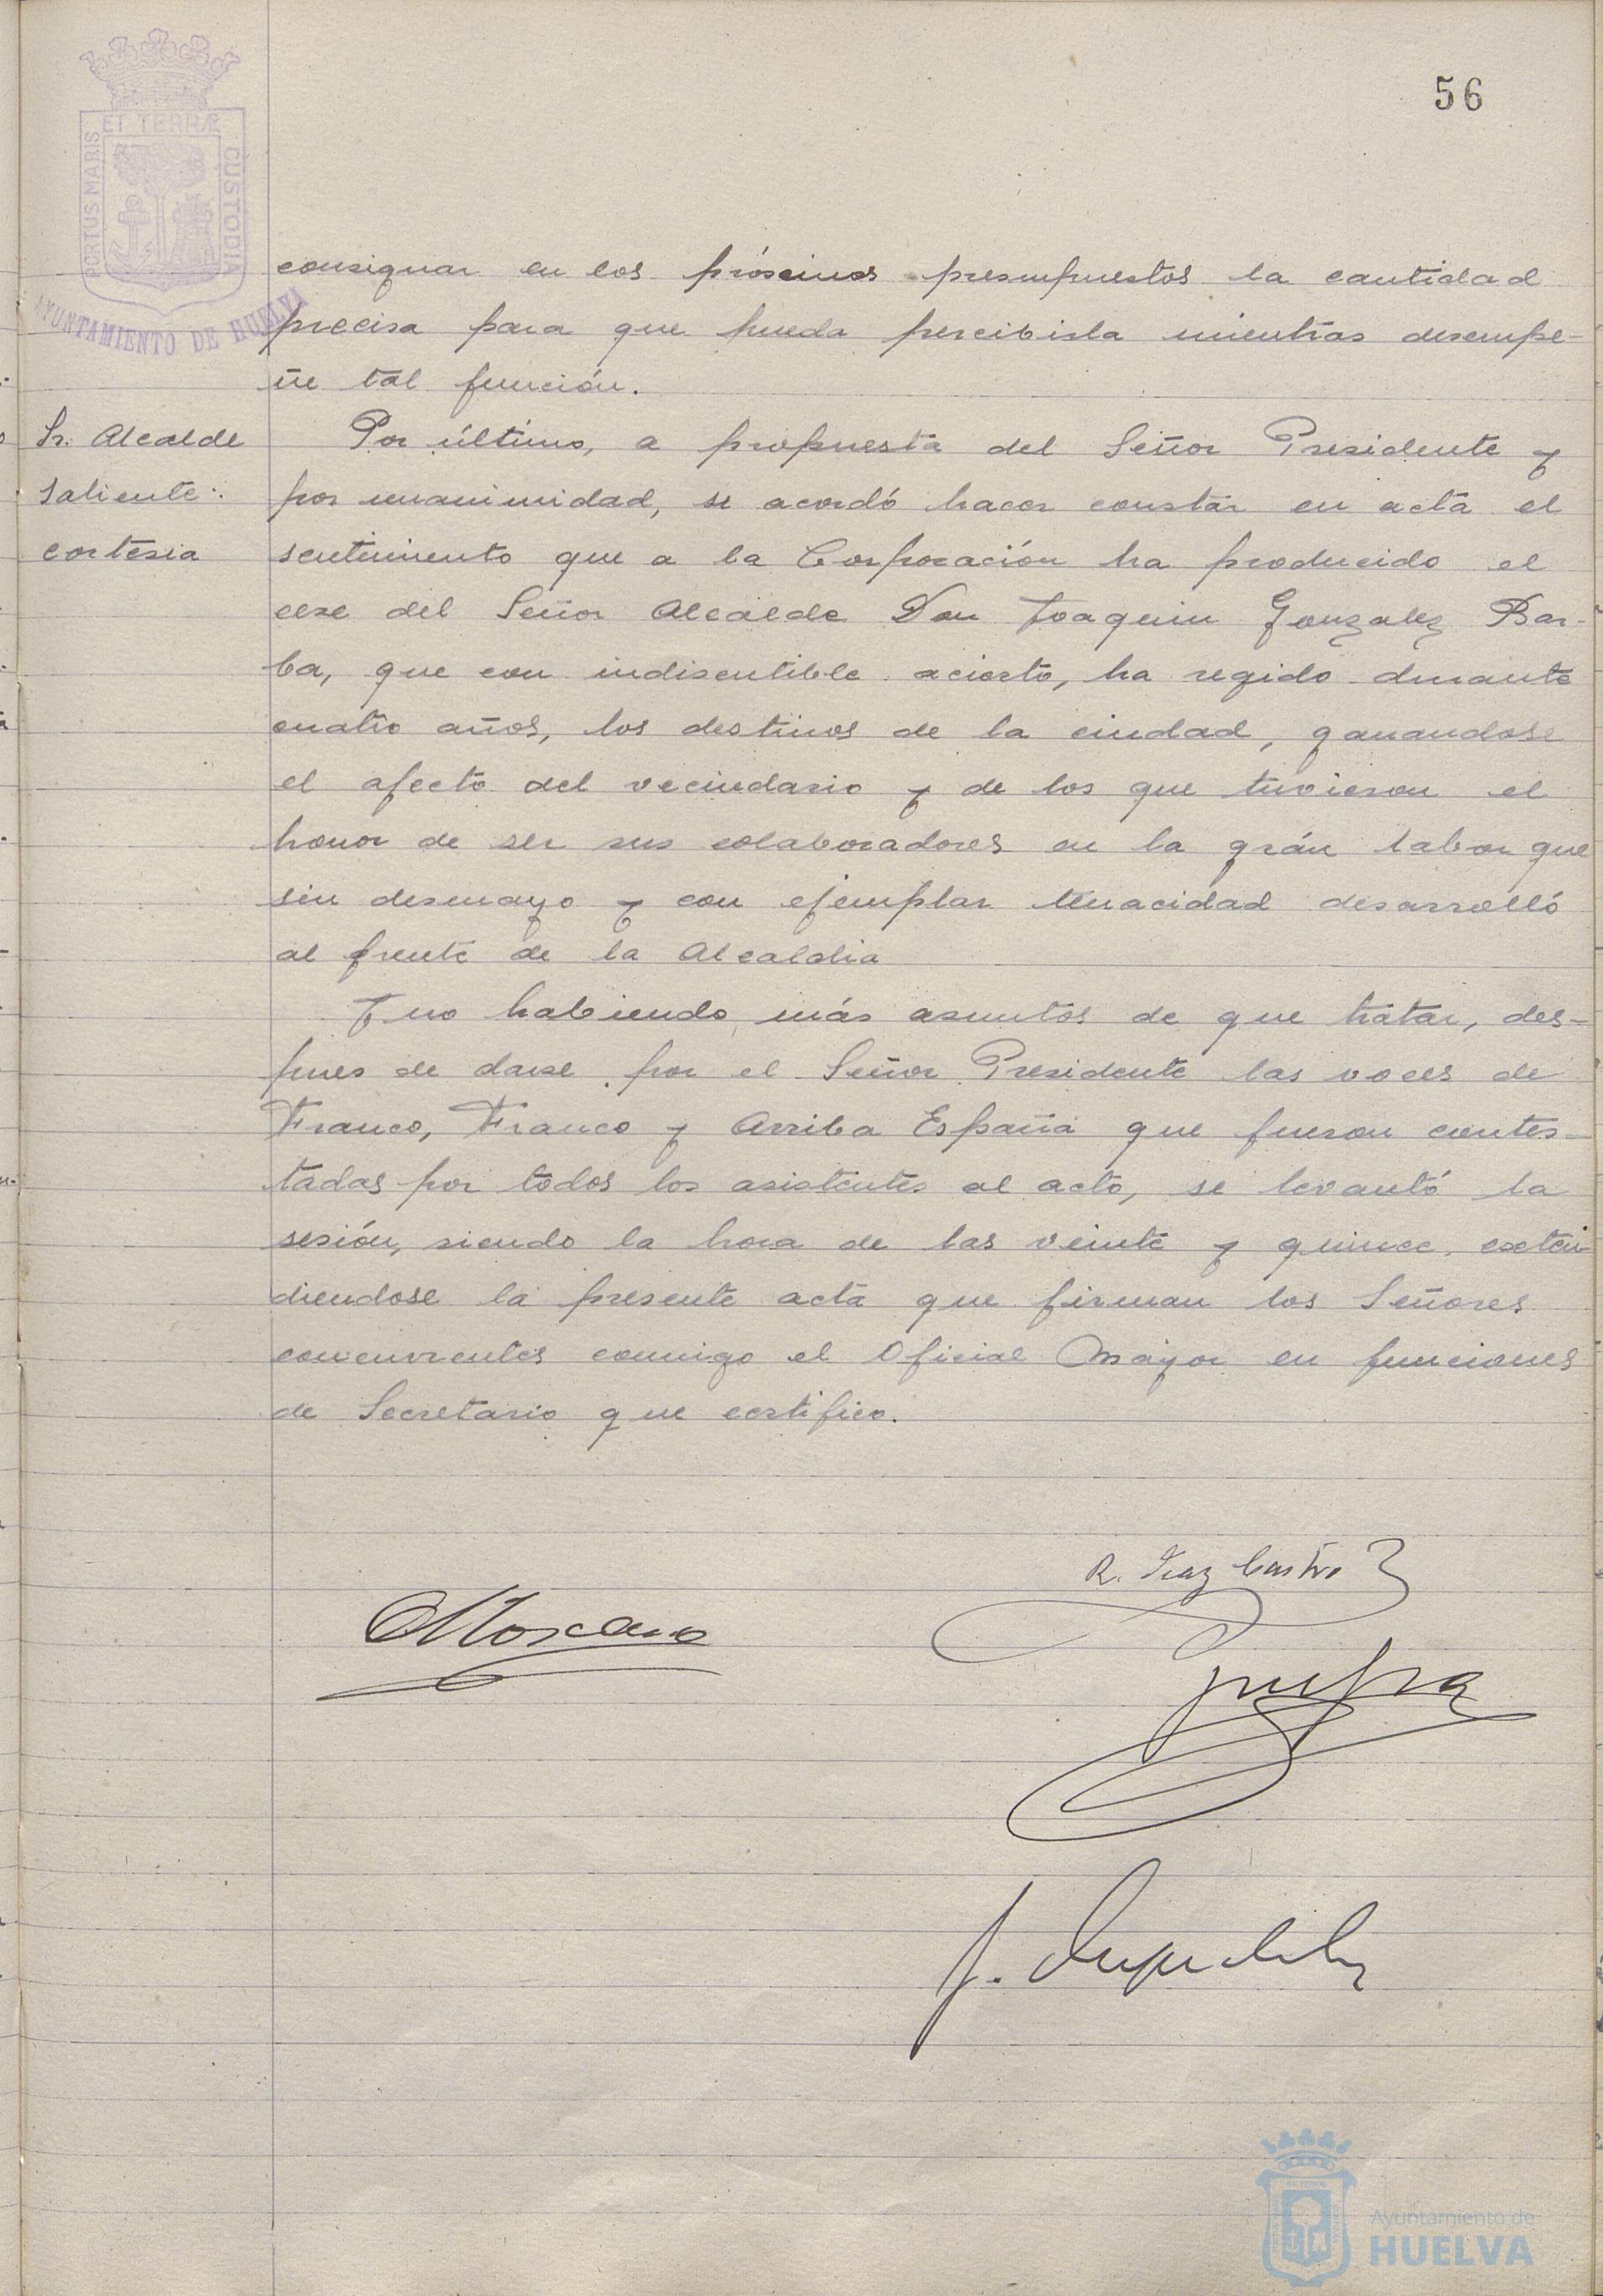 56
ET TERRÆ
PORTUS MARIS
CUSTODIA
AYUNTAMIENTO DE HUELVA
consignar en los próximos presupuestos la cantidad
precisa para que pueda percibirla mientras desempe-
ñe tal función.
Sr. Alcalde
saliente:
cortesia
Por último, a propuesta del Señor Presidente y
por unanimidad, se acordó hacer constar en acta el
sentimiento que a la Corporación ha producido el
cese del Señor Alcalde Don Joaquin Gonzalez Bar-
ba, que con indiscutible acierto, ha regido durante
cuatro años, los destinos de la ciudad, ganandose
el afecto del vecindario y de los que tuvieron el
honor de ser sus colaboradores en la grán labor que
sin desmayo y con ejemplar tenacidad desarrolló
al frente de la Alcaldia
Y no habiendo más asuntos de que tratar, des-
pues de darse por el Señor Presidente las voces de
Franco, Franco y Arriba España que fueron contes-
tadas por todos los asistentes al acto, se levantó la
sesión, siendo la hora de las veinte y quince, exten-
diendose la presente acta que firman los Señores
concurrentes conmigo el Oficial Mayor en funciones
de Secretario que certifico.
R. Diaz Castro
Ayuntamiento de
HUELVA